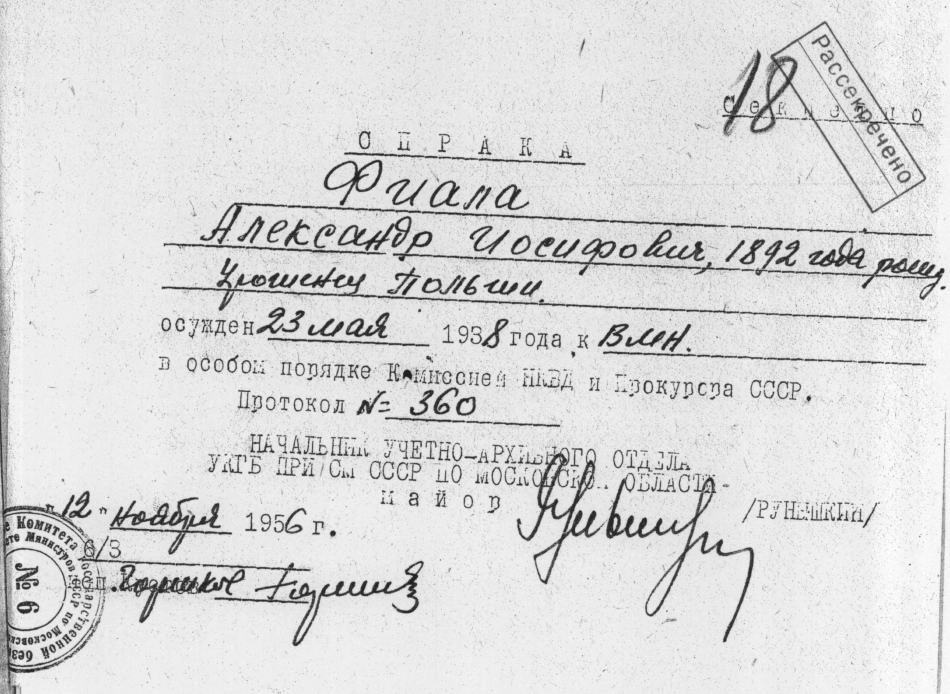 18
Рассекречено
Секретно
СПРАКА
Фиала
Александр Иосифович, 1892 года рожд.
Урошенец Польши.
осужден 23 мая 1938 года к ВМН.
в особом порядке Комиссией НКВД и Прокурора СССР.
Протокол № 360
НАЧАЛЬНИК УЧЕТНО-АРХИВНОГО ОТДЕЛА
УКГБ ПРИ СМ СССР ПО МОСКОВСКОЙ ОБЛАСТИ-
майор /РУНЫШКИН/
"12" ноября 1956 г.
6/3
исп.
е Комитета Государственной безо
ете Министров СССР по Московско
№ 6